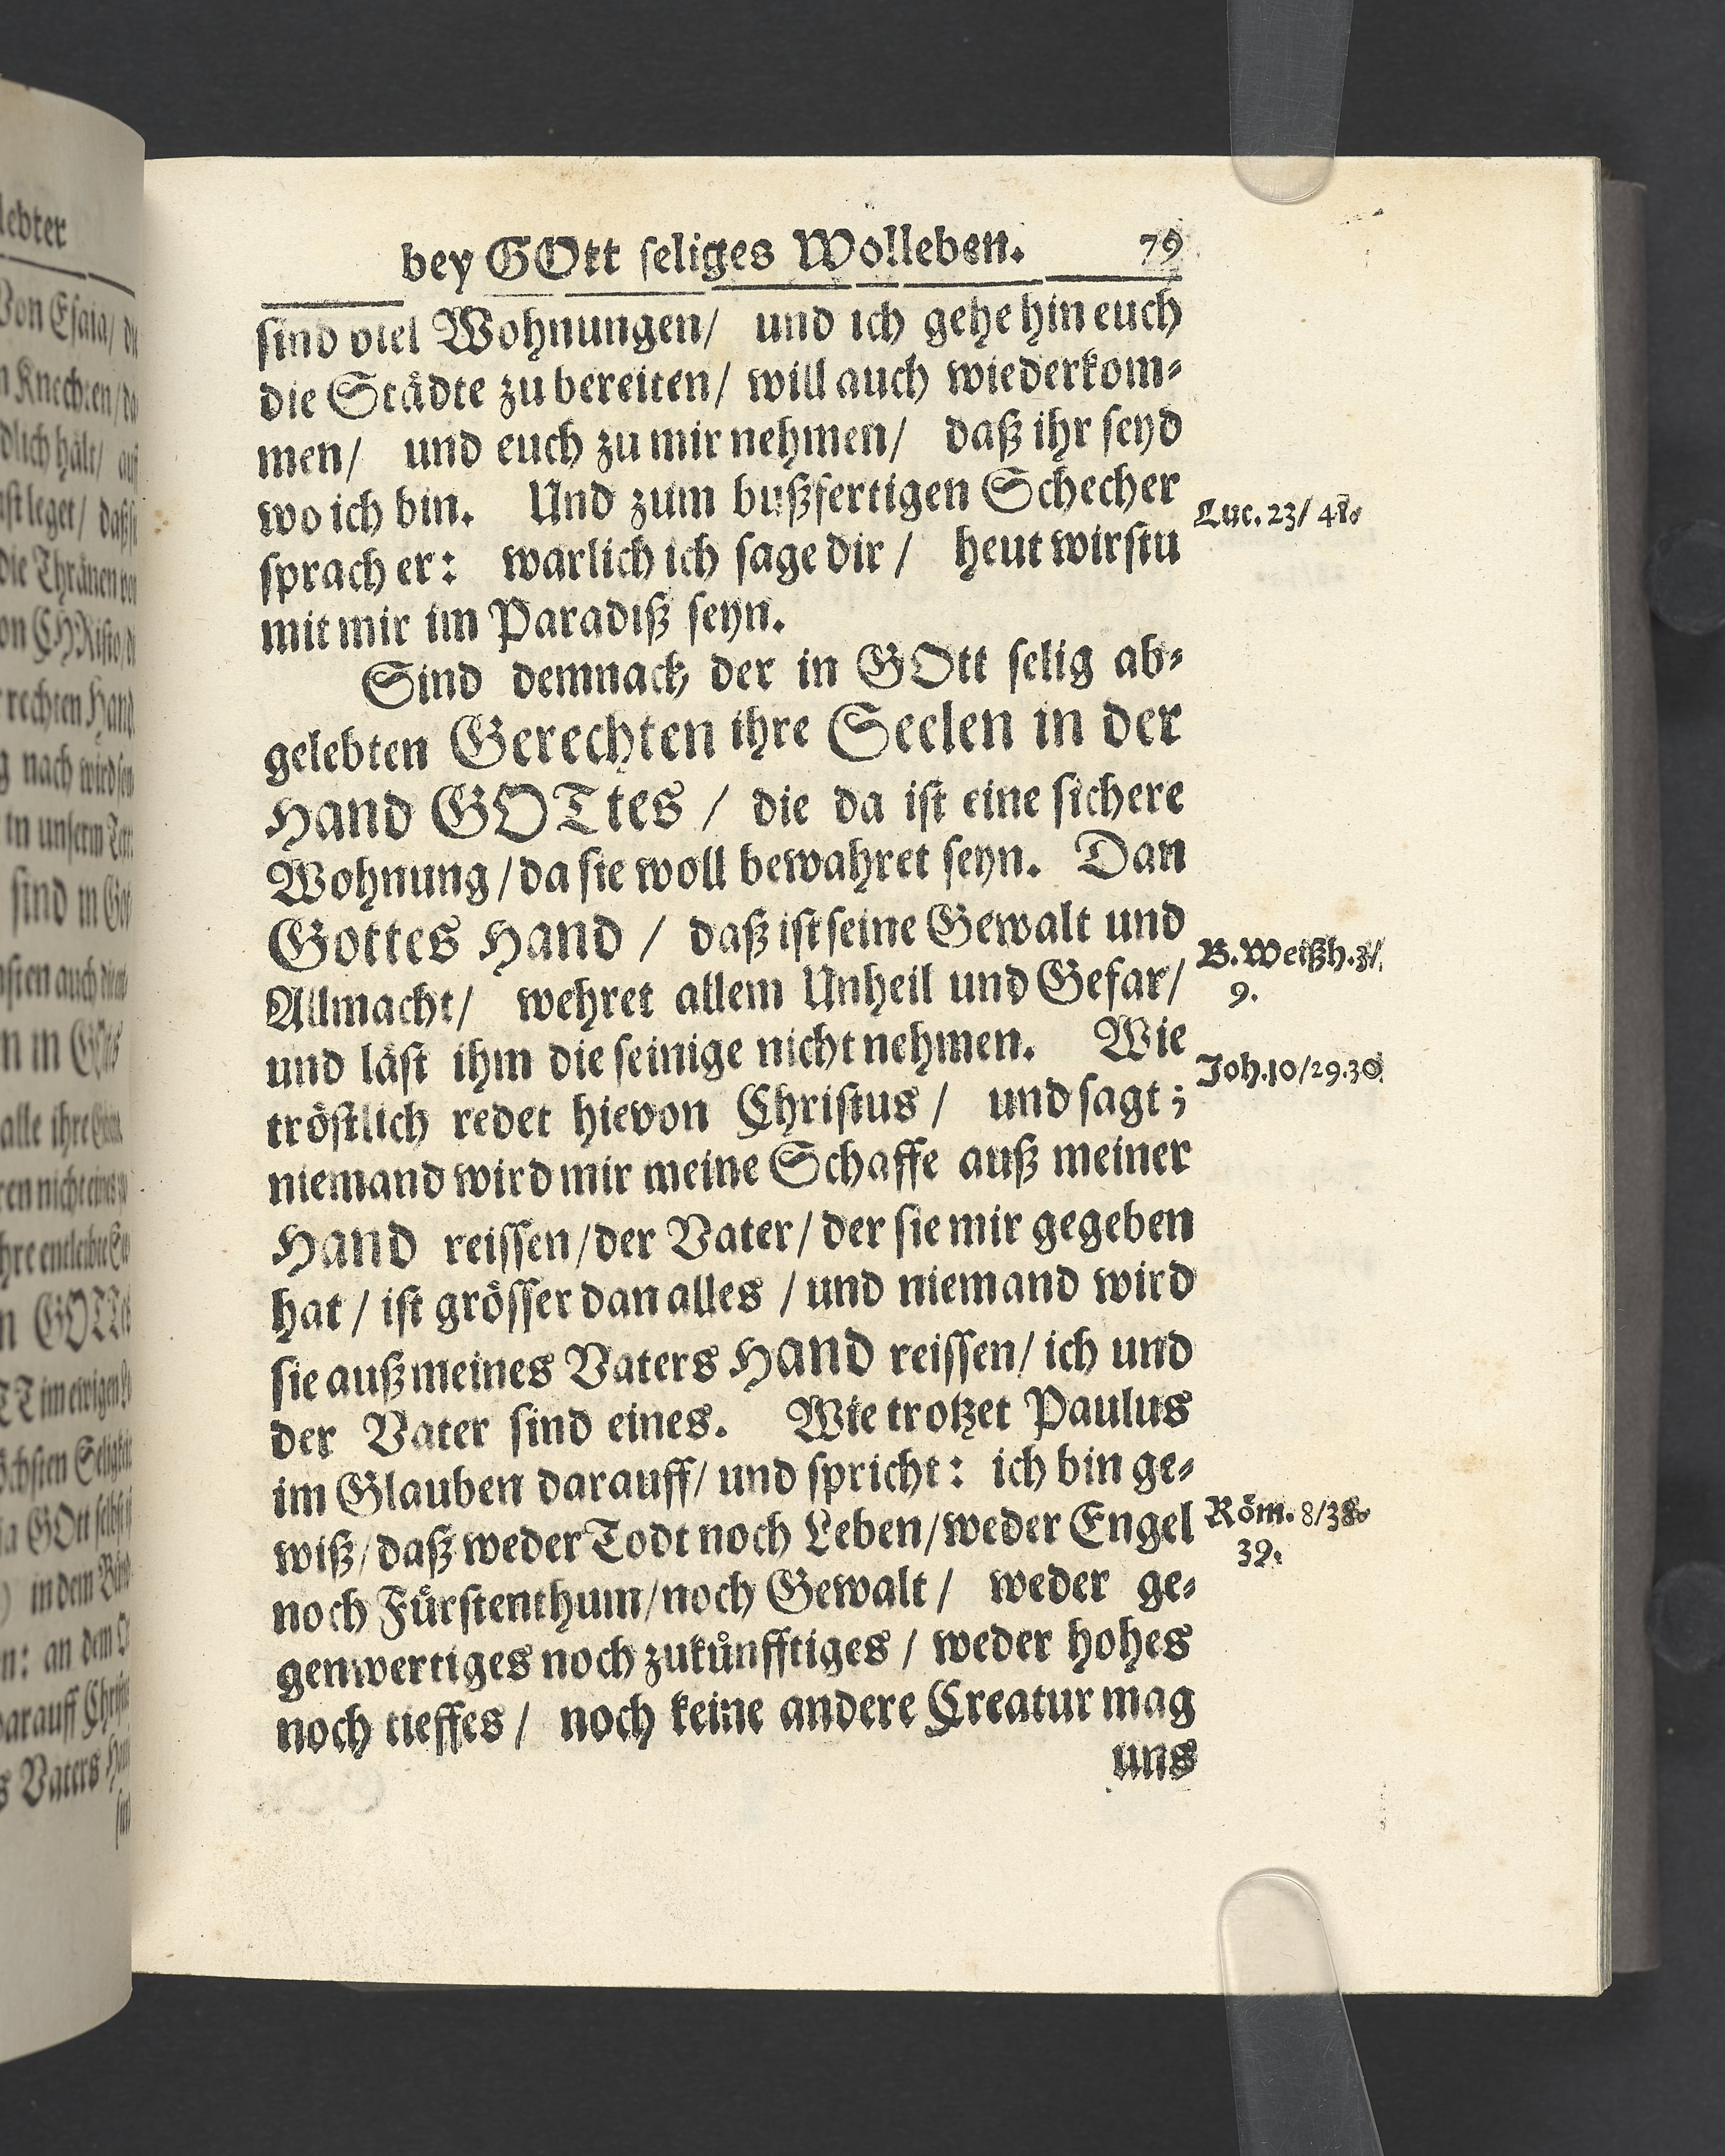 bey GOtt seliges Wolleben. 79
sind viel Wohnungen/ und ich gehe hin euch
die Städte zu bereiten/ will auch wiederkom-
men/ und euch zu mir nehmen/ daß ihr seyd
wo ich bin. Und zum bußfertigen Schecher
Luc. 23/ 48.
sprach er: warlich ich sage dir / heut wirstu
mit mir im Paradiß seyn.
Sind demnach der in GOtt selig ab-
gelebten Gerechten ihre Seelen in der
Hand GOTtes / die da ist eine sichere
Wohnung/ da sie woll bewahret seyn. Dan
Gottes Hand / daß ist seine Gewalt und
B. Weißh. 3/
9.
Allmacht/ wehret allem Unheil und Gefar/
und läst ihm die seinige nicht nehmen. Wie
Joh. 10/29.30
tröstlich redet hievon Christus / und sagt;
niemand wird mir meine Schaffe auß meiner
Hand reissen/der Vater/ der sie mir gegeben
hat / ist grösser dan alles / und niemand wird
sie auß meines Vaters Hand reissen/ ich und
der Vater sind eines. Wie trotzet Paulus
im Glauben darauff/ und spricht: ich bin ge-
wiß/ daß weder Todt noch Leben/weder Engel
Röm. 8/38.
39.
noch Fürstenthum/noch Gewalt / weder ge-
genwertiges noch zukünfftiges / weder hohes
noch tieffes / noch keine andere Creatur mag
uns